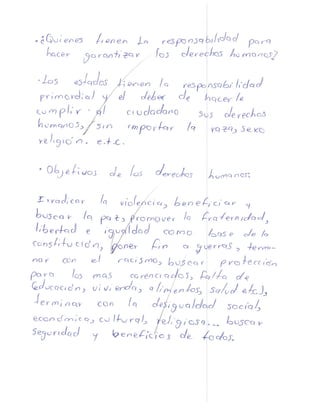 • ¿Quienes tienen la responsabilidad para
hacer garantizar los derechos humanos?
• Los estados tienen la responsabilidad
primordial y el deber de hacerle
cumplir al ciudadano sus derechos
humanos, sin importar la raza, sexo
religión. e.t.c.
• Objetivos de los derechos humanos:
Erradicar la violencia, beneficiar y
buscar la paz, promover la fraternidad,
libertad e igualdad como base de la
constitución, poner fin a guerras, termi-
nar con el racismo, buscar protección
para los mas carenciados, falta de
Educación, vivienda, alimentos, salud etc.),
terminar con la desigualdad social,
económica, cultural, religiosa... buscar
Seguridad y beneficios de todos.